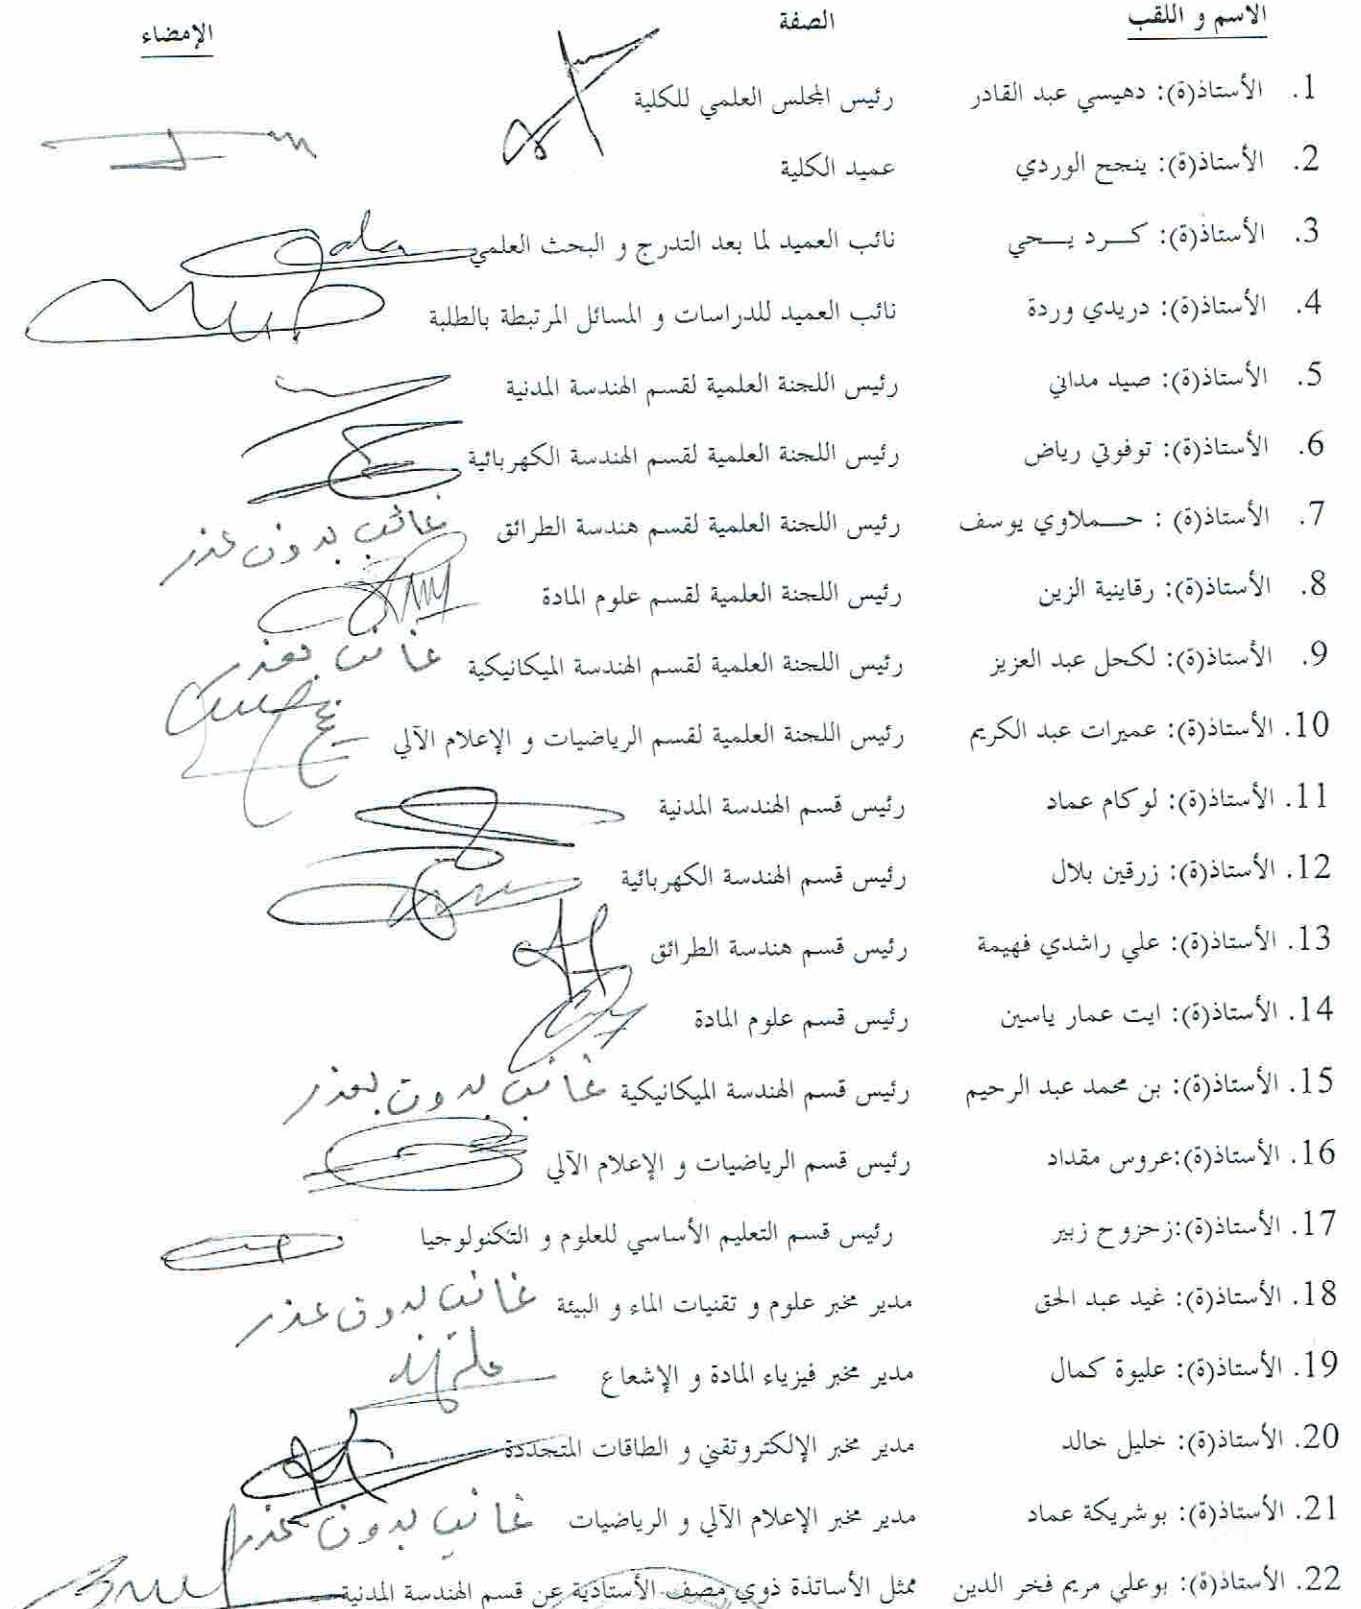 الاسم و اللقب الصفة الإمضاء
1. الأستاذ(ة): دهيسي عبد القادر رئيس المجلس العلمي للكلية
2. الأستاذ(ة): ينجح الوردي عميد الكلية
3. الأستاذ(ة): كـــرد يـــحي نائب العميد لما بعد التدرج و البحث العلمي
4. الأستاذ(ة): دريدي وردة نائب العميد للدراسات و المسائل المرتبطة بالطلبة
5. الأستاذ(ة): صيد مداني رئيس اللجنة العلمية لقسم الهندسة المدنية
6. الأستاذ(ة): توفوتي رياض رئيس اللجنة العلمية لقسم الهندسة الكهربائية
7. الأستاذ(ة) : حـــملاوي يوسف رئيس اللجنة العلمية لقسم هندسة الطرائق غائب بدون عذر
8. الأستاذ(ة): رقاينية الزين رئيس اللجنة العلمية لقسم علوم المادة
9. الأستاذ(ة): لكحل عبد العزيز رئيس اللجنة العلمية لقسم الهندسة الميكانيكية غائب بعذر
10. الأستاذ(ة): عميرات عبد الكريم رئيس اللجنة العلمية لقسم الرياضيات و الإعلام الآلي
11. الأستاذ(ة): لوكام عماد رئيس قسم الهندسة المدنية
12. الأستاذ(ة): زرقين بلال رئيس قسم الهندسة الكهربائية
13. الأستاذ(ة): علي راشدي فهيمة رئيس قسم هندسة الطرائق
14. الأستاذ(ة): ايت عمار ياسين رئيس قسم علوم المادة
15. الأستاذ(ة): بن محمد عبد الرحيم رئيس قسم الهندسة الميكانيكية غائب بدون بعذر
16. الأستاذ(ة):عروس مقداد رئيس قسم الرياضيات و الإعلام الآلي
17. الأستاذ(ة):زحزوح زبير رئيس قسم التعليم الأساسي للعلوم و التكنولوجيا
18. الأستاذ(ة): غيد عبد الحق مدير مخبر علوم و تقنيات الماء و البيئة غائب بدون عذر
19. الأستاذ(ة): عليوة كمال مدير مخبر فيزياء المادة و الإشعاع
20. الأستاذ(ة): خليل خالد مدير مخبر الإلكتروتقني و الطاقات المتجددة
21. الأستاذ(ة): بوشريكة عماد مدير مخبر الإعلام الآلي و الرياضيات غائب بدون عذر
22. الأستاذ(ة): بوعلي مريم فخر الدين ممثل الأساتذة ذوي مصف الأستاذية عن قسم الهندسة المدنية